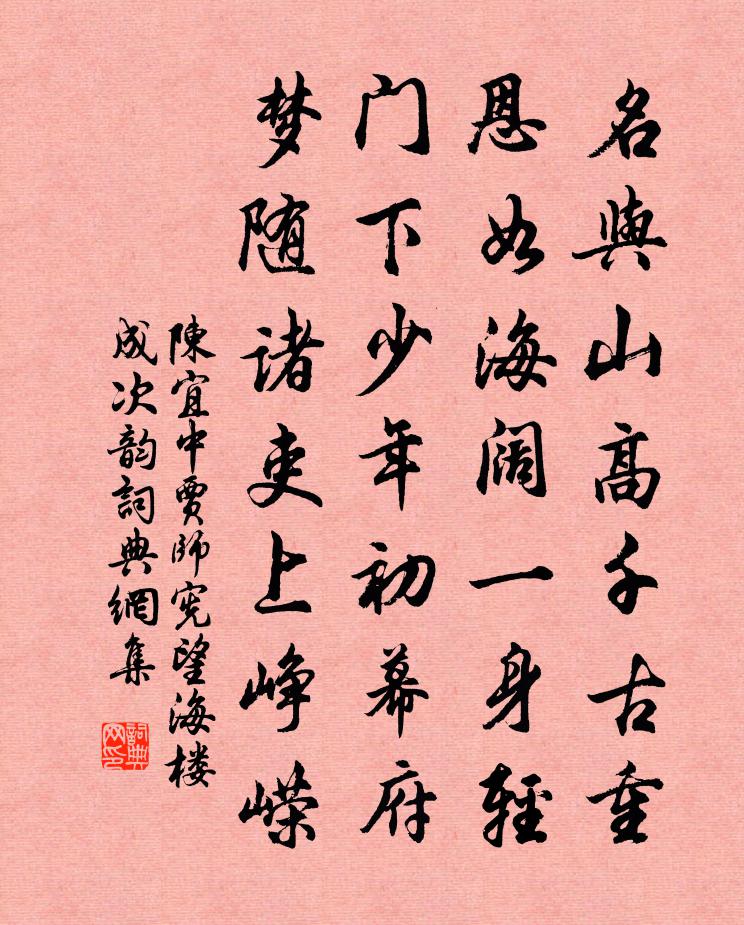 名與山高千古重
恩如海阔一身輕
门下少年初幕府
梦随诸吏上峥嵘
陳宜中賈师宪望海楼
成次韵詞典網集
詞典网印